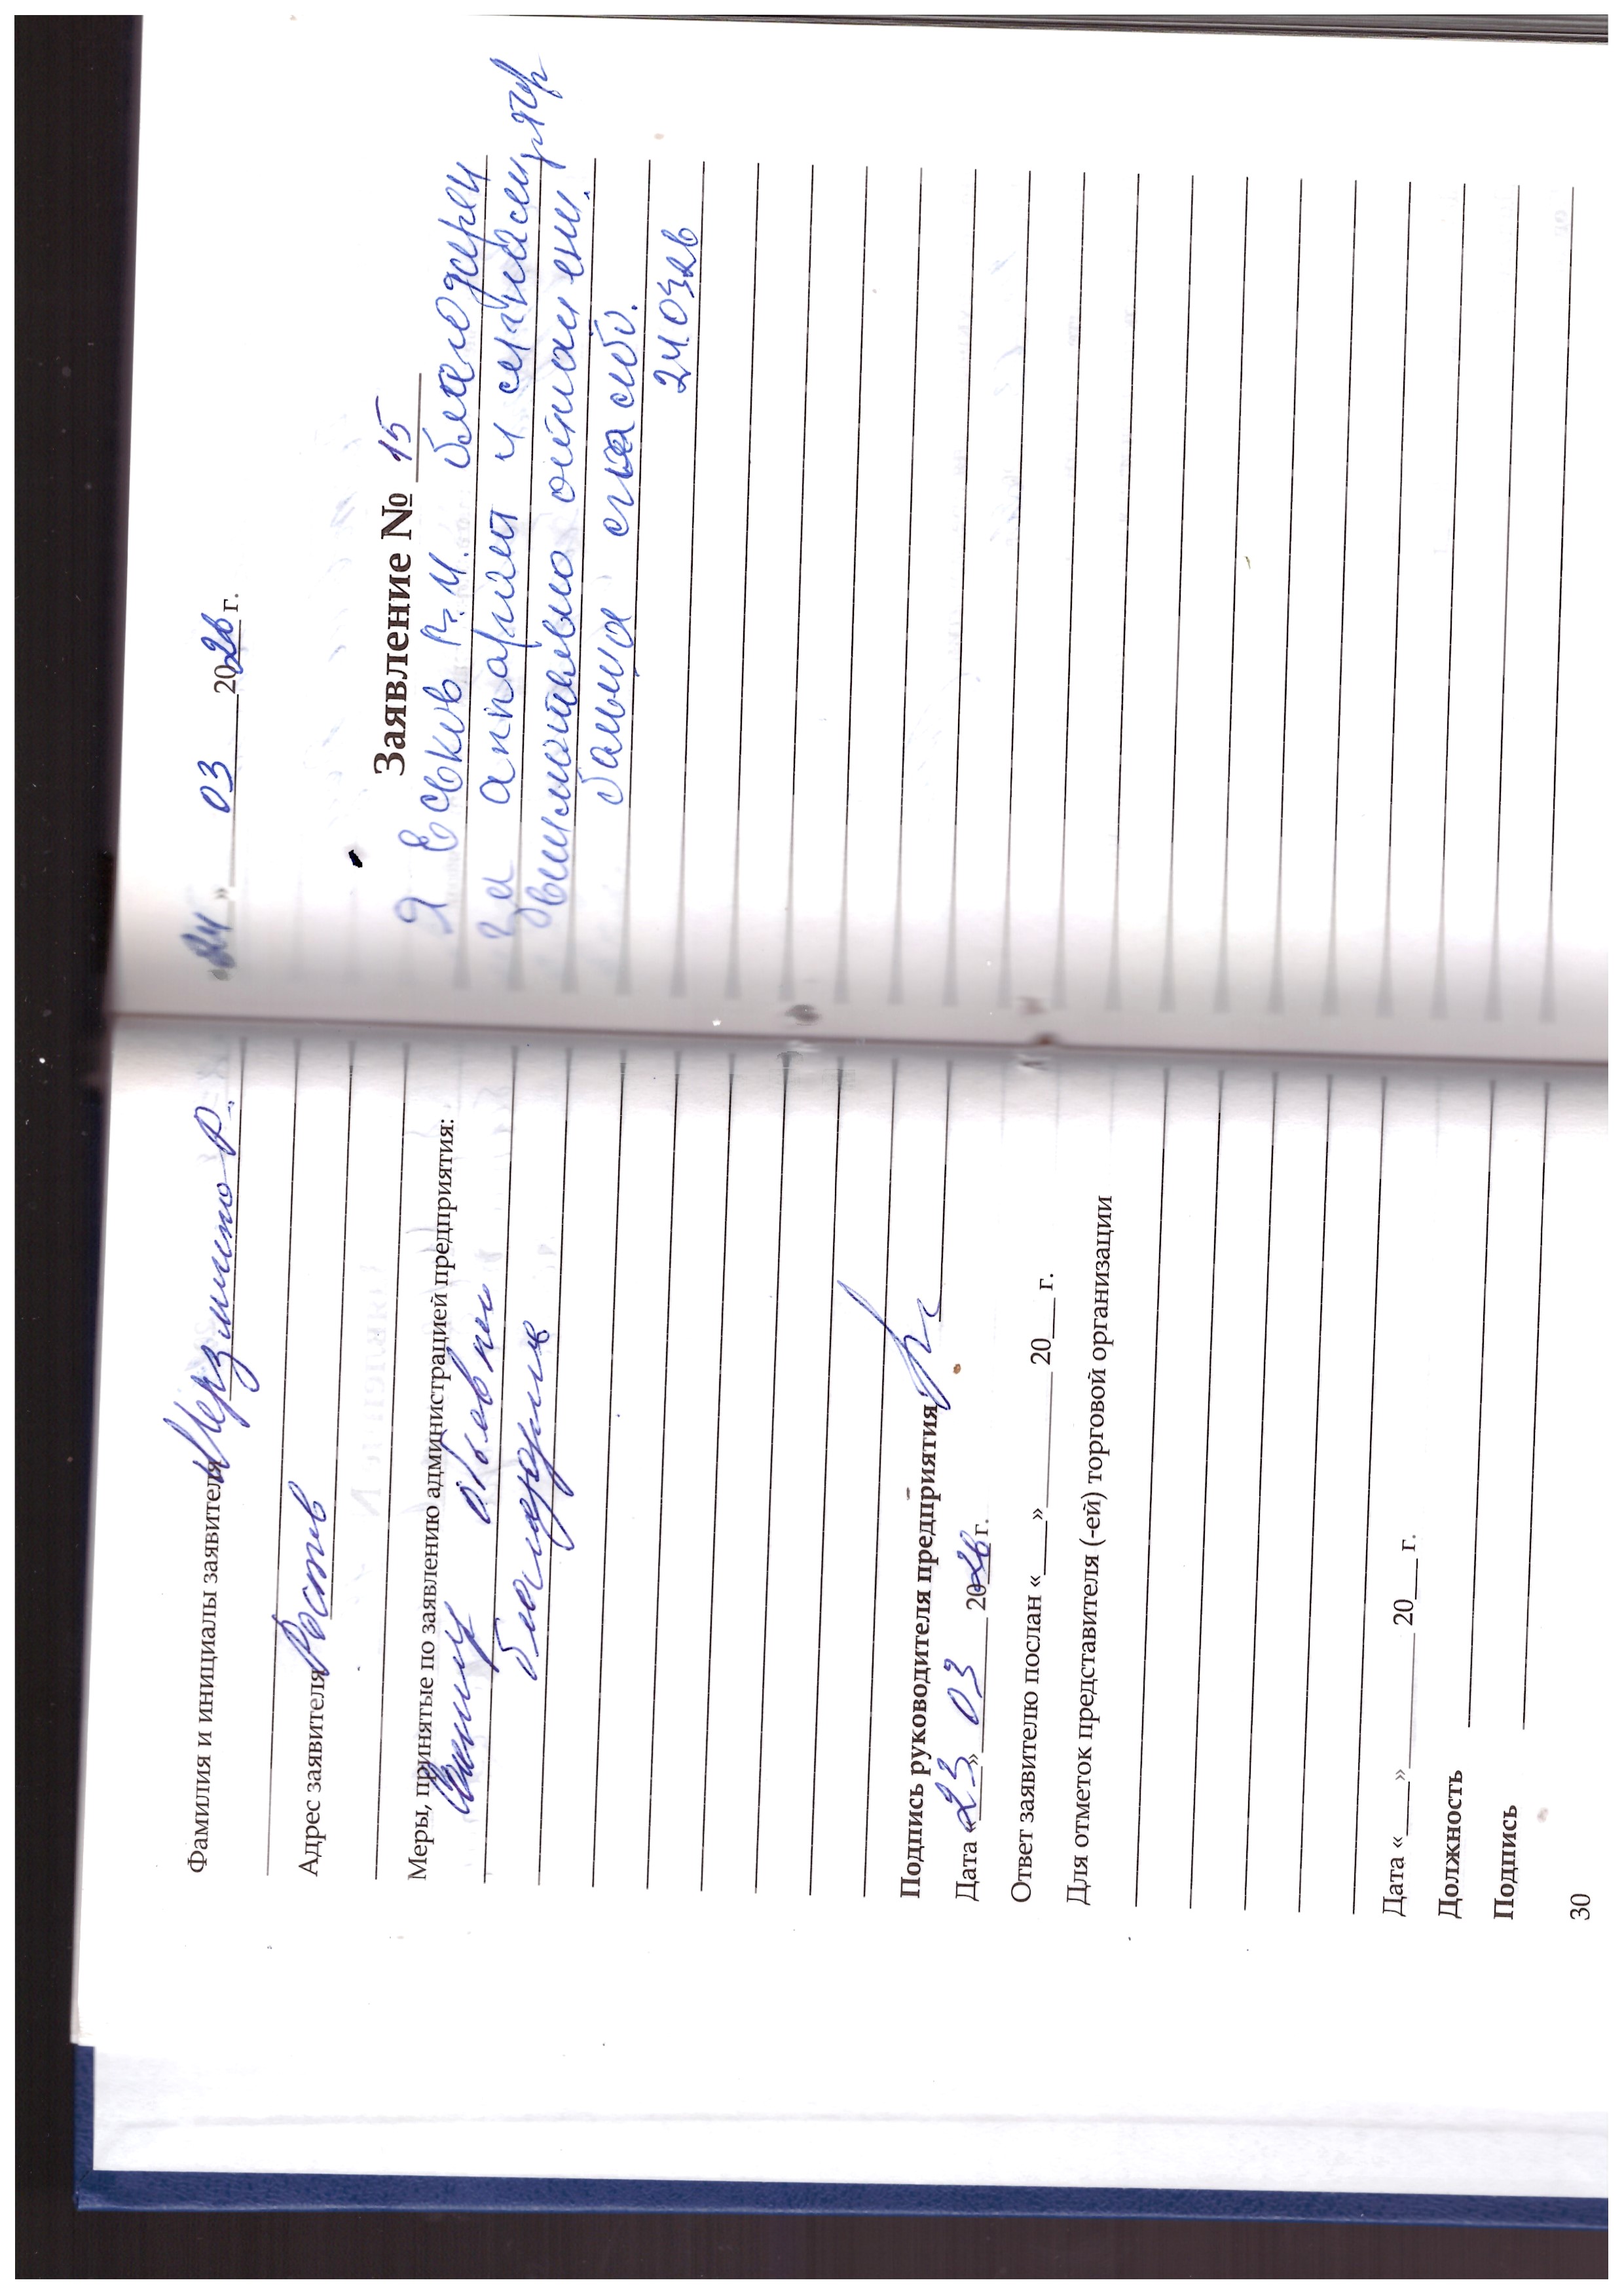 Фамилия и инициалы заявителя
Адрес заявителя Ростов
Меры, принятые по заявлению администрацией предприятия:
объявлена
благодарность
Подпись руководителя предприятия
Дата «23» 03 2026 г.
Ответ заявителю послан «___» ______ 20___ г.
Для отметок представителя (-ей) торговой организации
Дата «___» ______ 20___ г.
Должность
Подпись
30
«24» 03 2026 г.
Заявление № 15
Я благодарен
за и
отношени
спасибо.
24.03.26